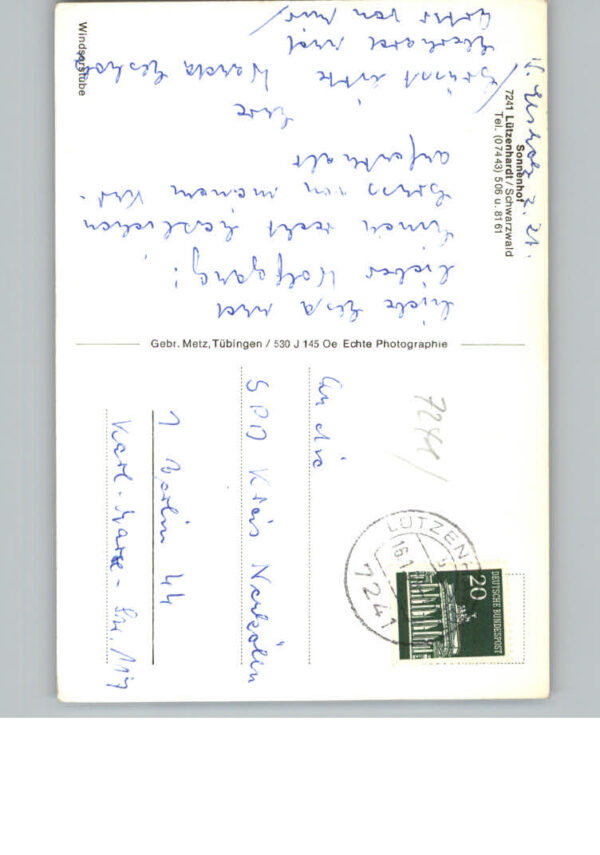 Sonnenhof
7241 Lützenhardt/Schwarzwald
Tel. (07443) 506 u. 8161
Windsorstube
Liebe und
lieber Wolfgang!
Einen recht herzlichen
Gruss von meinem
aufenthalt
Eberhard und
von mir
Gebr. Metz, Tübingen / 530 J 145 Oe Echte Photographie
7241/
LÜTZENH
16.1
7241
20
DEUTSCHE BUNDESPOST
An die
SPD Kreis Neukölln
1 Berlin 44
Karl-Marx-Str. 117